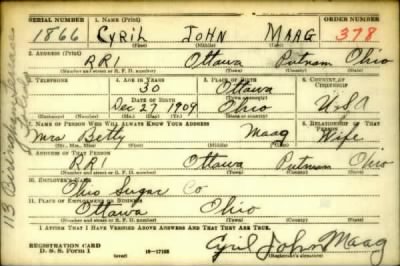 SERIAL NUMBER 1. NAME (Print) ORDER NUMBER
1866 CYRIL JOHN MAAG 378
(First) (Middle) (Last)
2. ADDRESS (Print)
RR1 Ottawa Putnam Ohio
(Number and street or R. F. D. number) (Town) (County) (State)
3. TELEPHONE 4. AGE IN YEARS 5. PLACE OF BIRTH 6. COUNTRY OF CITIZENSHIP
30 Ottawa
DATE OF BIRTH (Town or county)
Dec 27 1909 Ohio USA
(Exchange) (Number) (Mo.) (Day) (Yr.) (State or country)
7. NAME OF PERSON WHO WILL ALWAYS KNOW YOUR ADDRESS 8. RELATIONSHIP OF THAT PERSON
Mrs Betty Maag Wife
(Mr., Mrs., Miss) (First) (Middle) (Last)
9. ADDRESS OF THAT PERSON
RR1 Ottawa Putnam Ohio
(Number and street or R. F. D. number) (Town) (County) (State)
10. EMPLOYER'S NAME
Ohio Sugar Co
11. PLACE OF EMPLOYMENT OR BUSINESS
Ottawa Ohio
(Number and street or R. F. D. number) (Town) (County) (State)
I AFFIRM THAT I HAVE VERIFIED ABOVE ANSWERS AND THAT THEY ARE TRUE.
REGISTRATION CARD
D. S. S. Form 1 (over) 16-17105 Cyril John Maag
(Registrant's signature)
113